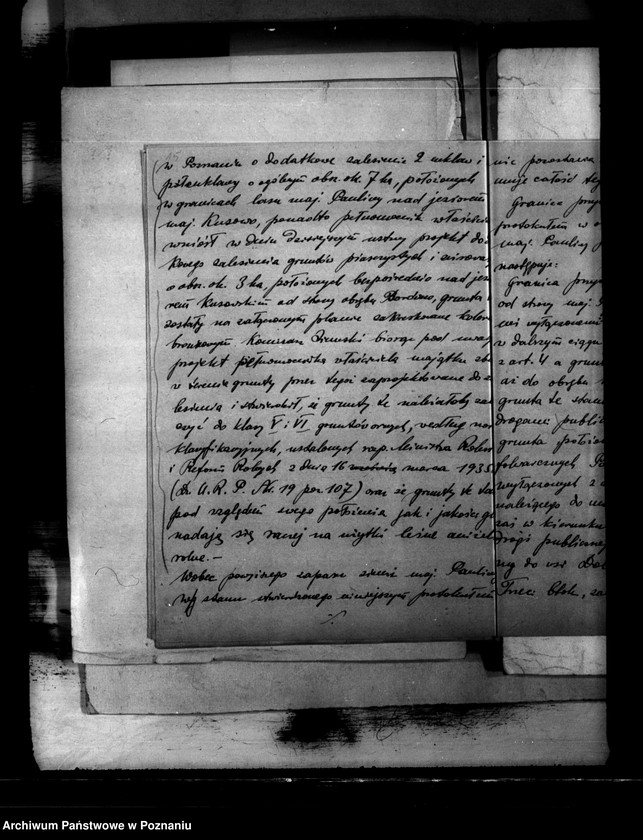 w Poznaniu o dodatkowe zalesienie 2 enklaw i
półenklawy o ogólnym obsz. ok. 7 ha, położonych
w granicach lasu maj. Pauliny nad jeziorem
maj. Kusowo, ponadto pełnomocnik właścicie
wniósł w dniu dzisiejszym ustny projekt do
zalesienia gruntów piaszczystych i
o obsz. ok. 3 ha, położonych bezpośrednio nad jez
rem Kusowskim od strony obrębu grunta
zostały na załączonym planie zakreskowane kolor
bronzowym. Komisarz Ziemski biorąc pod uwag
projekt pełnomocnika właściciela majątku
w terenie grunty przez tegoż zaprojektowane do z
lesienia i stwierdził, że grunty te należałoby za
czyć do klasy V i VI gruntów ornych, według nor
klasyfikacyjnych, ustalonych rozp. Ministra Rolni
i Reform Rolnych z dnia 16 marca 1935
(Dz. U. R. P. Nr. 19 poz. 107) oraz że grunty te
pod względem swego położenia jak i jakości g
nadają się raczej na użytki leśne aniżeli
rolne.-
Wobec powyższego zapasu ziemi maj. Pauliny
wg stanu stwierdzonego niniejszym protokułem
nie pozostawa
całość
Granica
protokułem w
maj. Pauliny
następuje:
Granica
od strony maj.
wyłączonemi
w dalszym ciągu
z art. 4 a grun
aż do obrębu
grunta te
drogami public
grunta położon
folwarcznych
wyłączonych z
należącego do
zaś w kierunku
drogi publicznej
do wsi
Trzeci blok, za
Archiwum Państwowe w Poznaniu